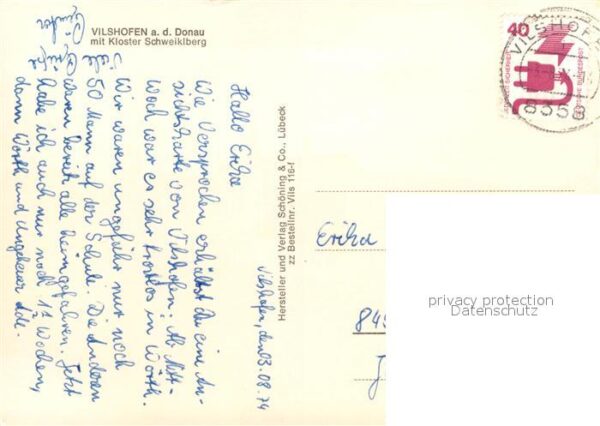 VILSHOFEN a. d. Donau
mit Kloster Schweiklberg
Vilshofen, den 03.08.74
Hallo Erika
Wie Versprochen erhältst du eine An-
sichtskarte von Vilshofen. Ab Mitt-
woch war es sehr trostlos in Wörth.
Wir waren ungefähr nur noch
50 Mann auf der Schule. Die Anderen
waren bereits alle heimgefahren. Jetzt
habe ich auch nur noch 1½ Wochen,
dann Wörth und Ungeheuer ade.
Günther
Hersteller und Verlag Schöning & Co., Lübeck
zz Bestellnr. Vils 116-f
40
DEUTSCHE BUNDESPOST
VILSHOFEN
8358
Erika
privacy protection
Datenschutz